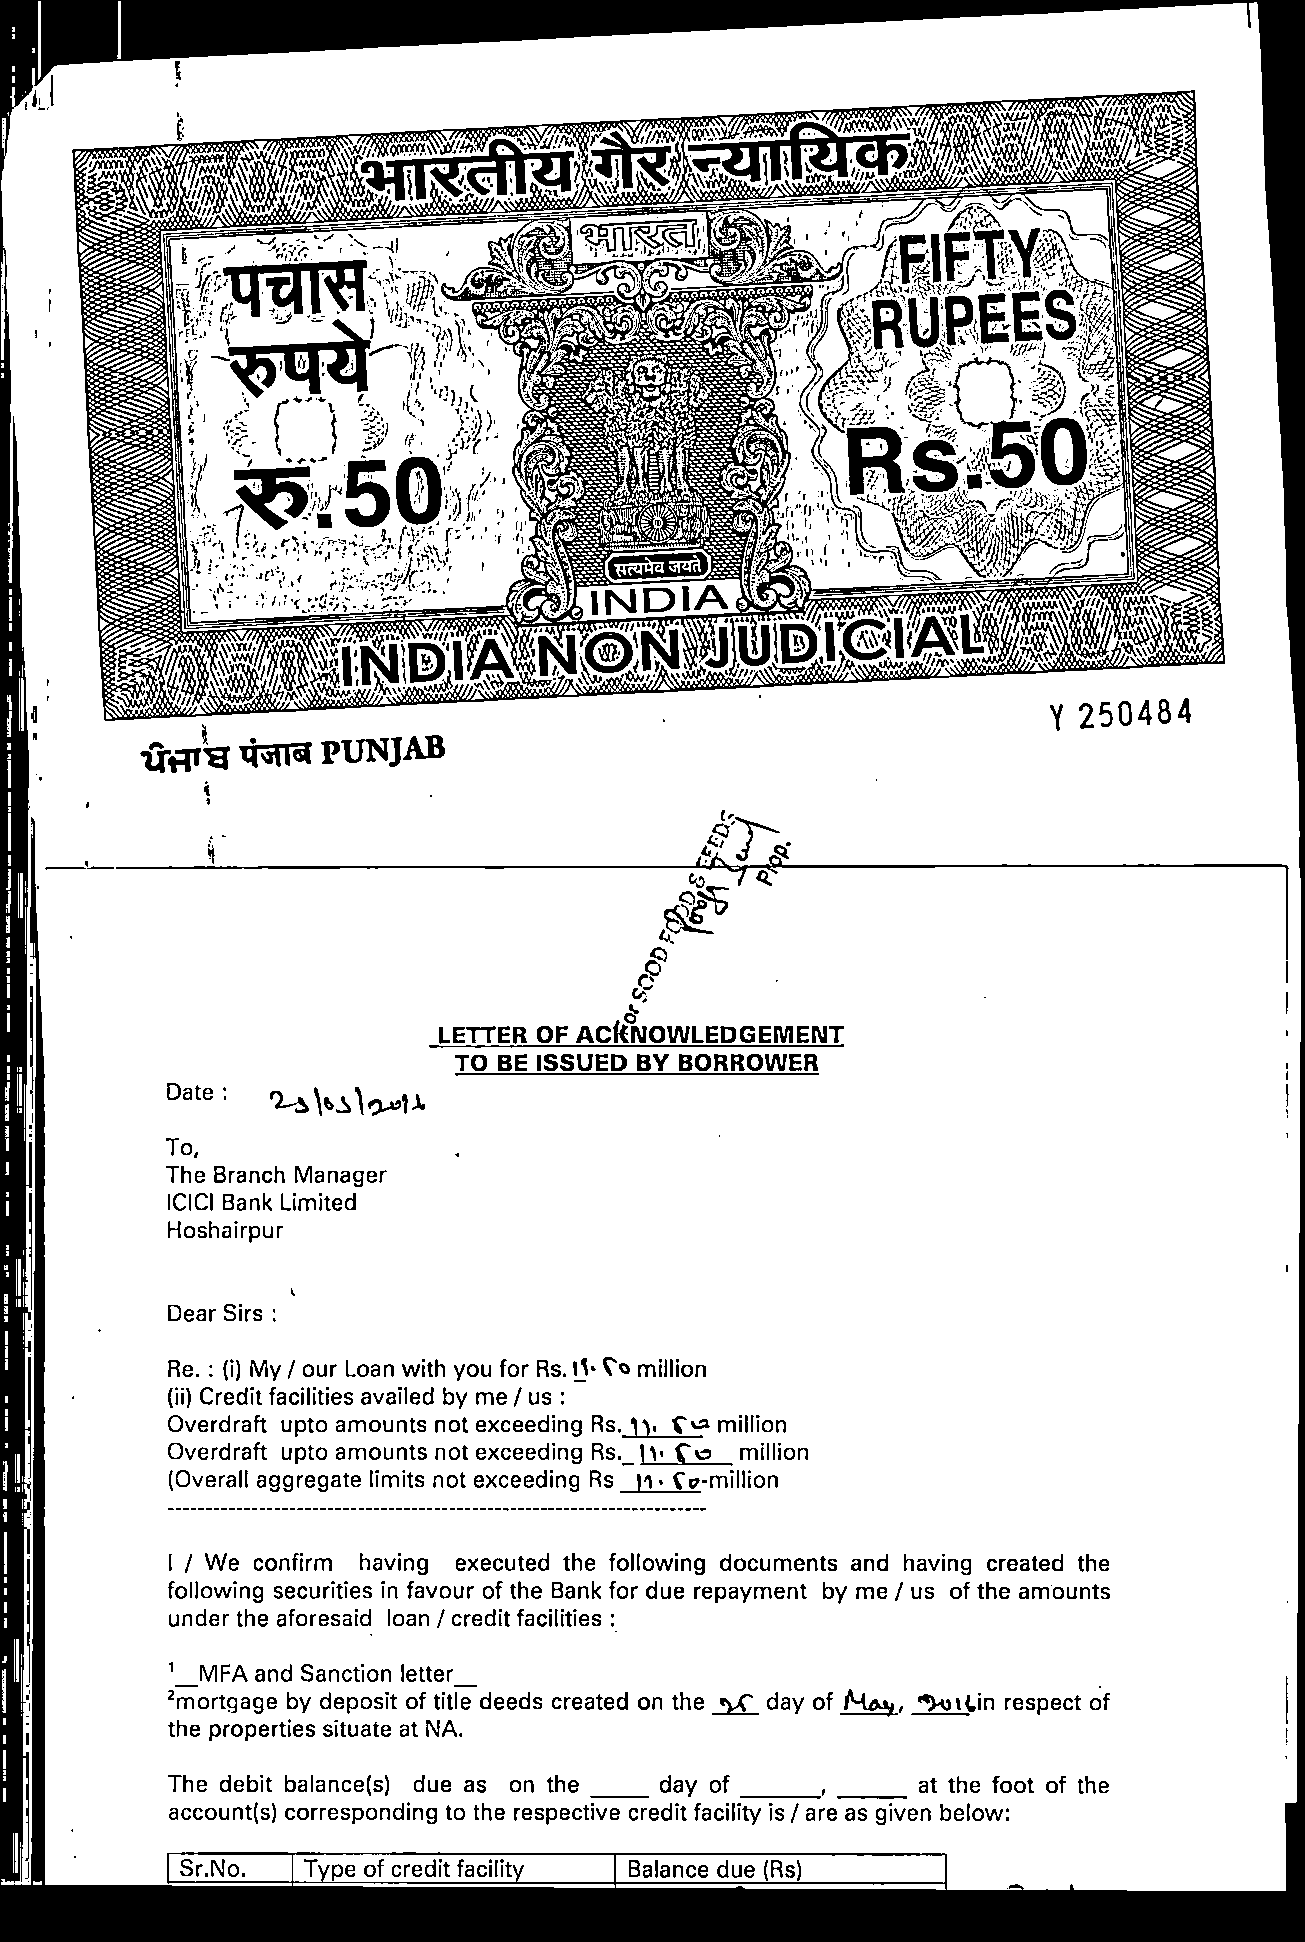 भारतीय गैर न्यायिक
भारत
पचास
रुपये
रु.50
FIFTY
RUPEES
Rs.50
सत्यमेव जयते
INDIA
INDIA NON JUDICIAL
Y 250484
ਪੰਜਾਬ पंजाब PUNJAB
For SOOD FOOD & FEEDS
Prop.
LETTER OF ACKNOWLEDGEMENT
TO BE ISSUED BY BORROWER
Date : 25/05/2016
To,
The Branch Manager
ICICI Bank Limited
Hoshairpur
Dear Sirs :
Re. : (i) My / our Loan with you for Rs. 11.50 million
(ii) Credit facilities availed by me / us :
Overdraft upto amounts not exceeding Rs. 11.50 million
Overdraft upto amounts not exceeding Rs. 11.50 million
(Overall aggregate limits not exceeding Rs 11.50-million
I / We confirm having executed the following documents and having created the
following securities in favour of the Bank for due repayment by me / us of the amounts
under the aforesaid loan / credit facilities :
1__MFA and Sanction letter__
2mortgage by deposit of title deeds created on the 25 day of May, 2016 in respect of
the properties situate at NA.
The debit balance(s) due as on the ____ day of ______, _____ at the foot of the
account(s) corresponding to the respective credit facility is / are as given below:
Sr.No. Type of credit facility Balance due (Rs)